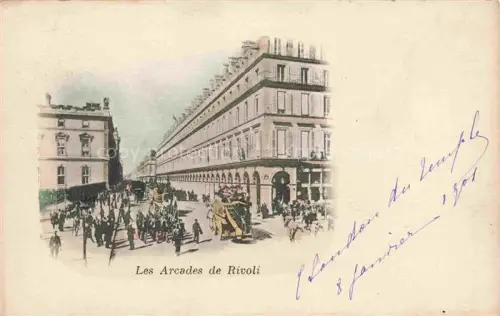 Les Arcades de Rivoli
London du Temple
8 Janvier 1901